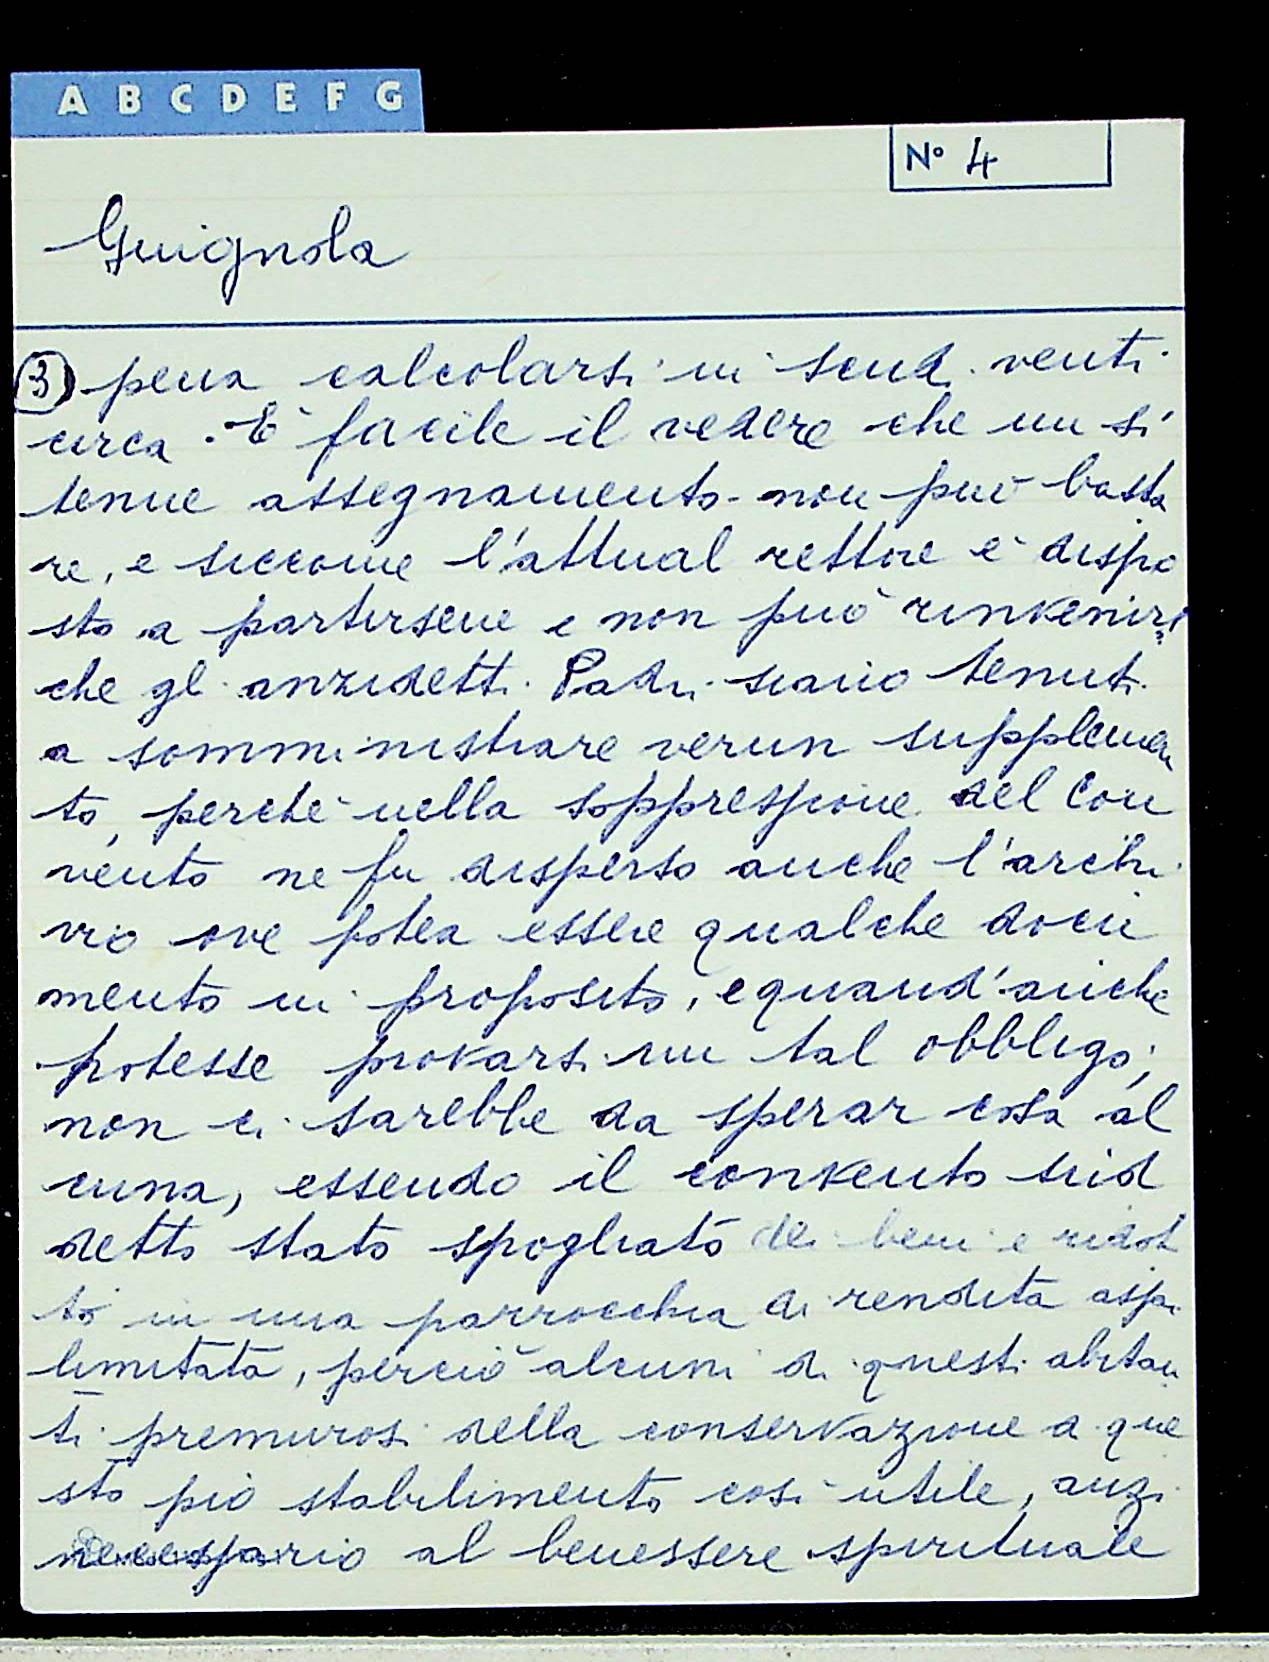 A B C D E F G
N° 4
Guignola
③ pena calcolarsi in scudi venti
circa. È facile il vedere che un sì
tenue assegnamento non può basta
re, e siccome l'attual rettore è dispo
sto a partirsene e non può rinvenirsi
che gl anzidetti Padri siano tenuti
a somministrare verun supplemen
to, perchè nella soppressione del Con
vento ne fu disperso anche l'archi
vio ove potea essere qualche docu
mento in proposito, e quand'anche
potesse provarsi un tal obbligo,
non ci sarebbe da sperar cosa al
cuna, essendo il convento sud
detto stato spogliato dei beni e ridot
to in una parrocchia di rendita assai
limitata, perciò alcuni di questi abitan
ti premurosi della conservazione a que
sto pio stabilimento così utile, anzi
necessario al benessere spirituale